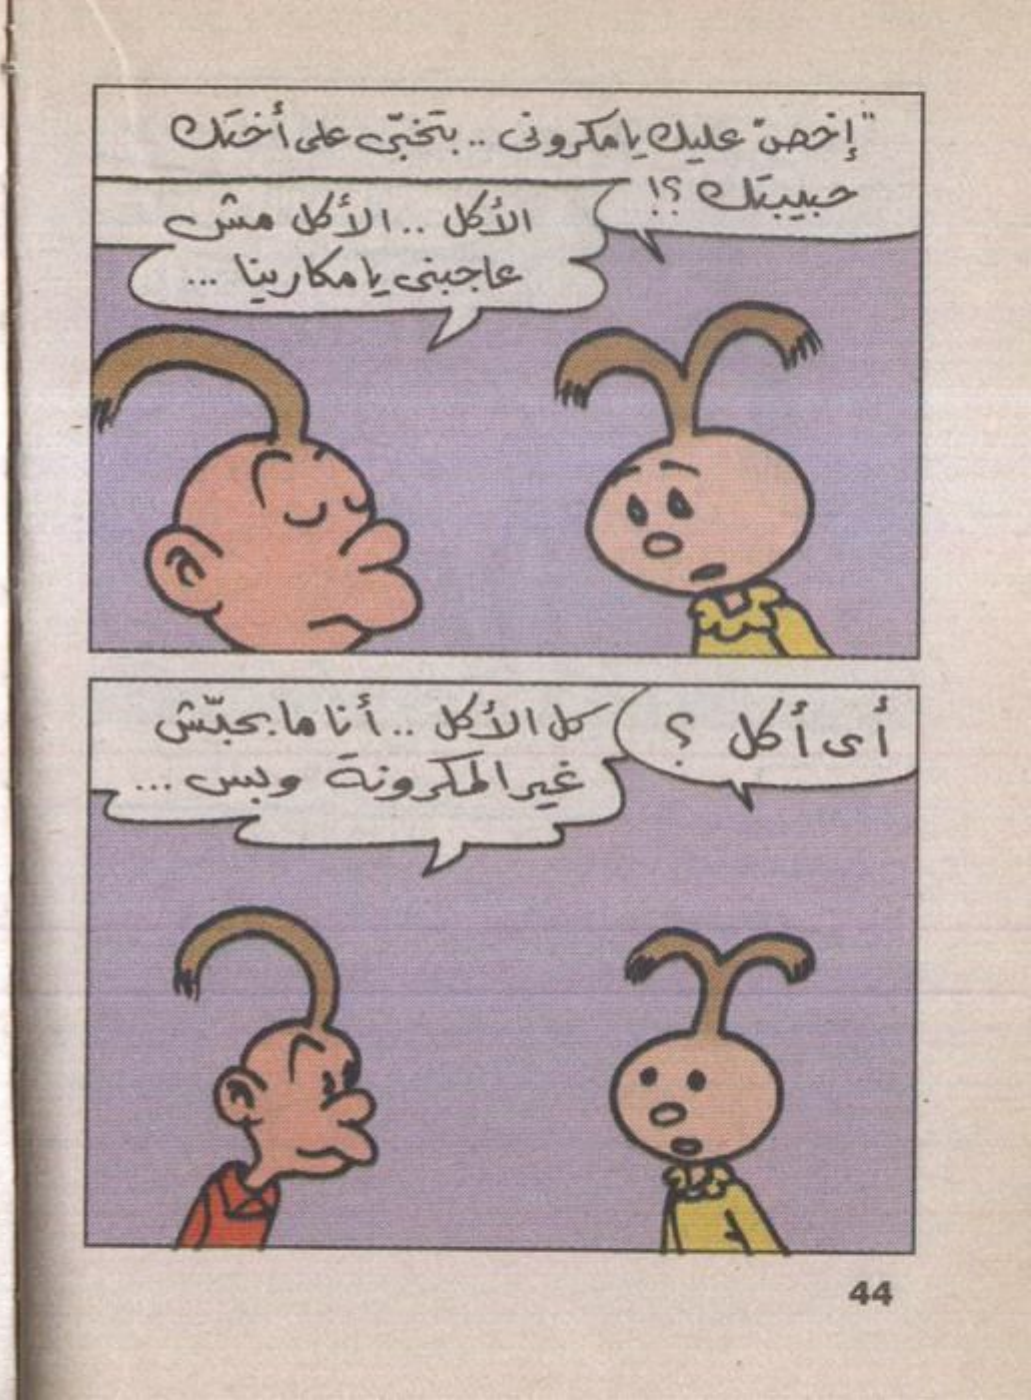 "إخصّ" عليك يا مكرونى .. بتخبّى على أختك
حبيبتك ؟!
الأكل .. الأكل مش
عاجبنى يا مكارينا ...
أى أكل ؟
كل الأكل .. أنا ما بحبّش
غير المكرونة وبس ...
44